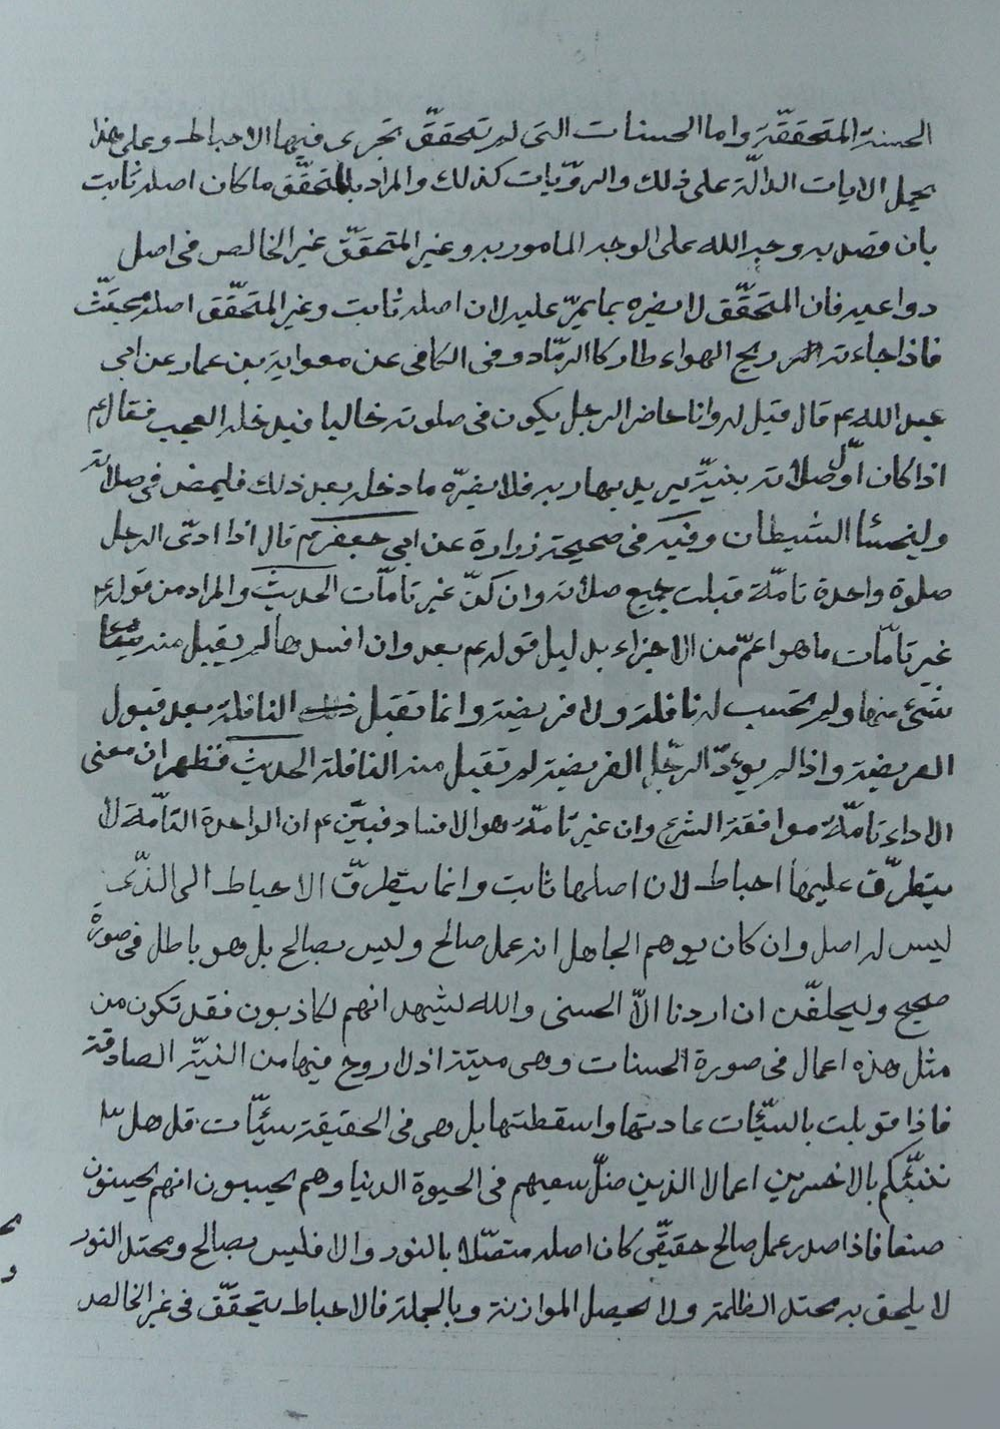 الحسنة المتحققّة واما الحسنات التى لم تتحققّ تجرى فيها الاحباط وعلى هذا
يحمل الايات الدالّة على ذلك والروّيات كذلك والمراد بالمتحقّق ما كان اصله ثابت
بان قصد به وجه الله على الوجه المامور به وغير المتحققّ غير الخالص فى اصل
دواعيه فان المتحقّق لا يضره بما يمرّ عليه لان اصله ثابت وغير المتحقّق اصله مجتثّ
فاذا جاءته ريح الهواء طار كالرمّاد وفى الكافى عن معوية بن عمار عن ابى
عبد الله ع قال قيل له وانا حاضر الرجل يكون فى صلوته خاليا فيدخله العجب فقال ع
اذا كان اوّل صلاته بنيّة يريد بها ربه فلا يضرّه ما دخله بعد ذلك فليمض فى صلاته
وليخسئا الشيطان وفيه فى صحيحة زرارة عن ابى جعفر ع قال اذا ادّى الرجل
صلوة واحدة تامّة قبلت جميع صلاته وان كنّ غير تامّات الحديث والمراد من قوله ع
غير تامّات ما هو اعمّ من الاجزاء بدليل قوله ع بعد وان افسدها لم يقبل منه
شئ منها ولم تحتسب له نافلة ولا فريضة وانما تقبل النافلة بعد قبول
الفريضة واذا لم يودّ الرجل الفريضة لم تقبل منه النافلة الحديث فظهر ان معنى
الاداء تامّة موافقة الشرع وان غير تامّة هو الافساد فبيّن ع ان الواحدة التامّة لا
يتطرّق عليها احباط لان اصلها ثابت وانما يتطرّق الاحباط الى الذّى
ليس له اصل وان كان يوهم الجاهل انه عمل صالح وليس بصالح بل وهو باطل فى صورة
صحيح وليحلفّن ان اردنا الاّ الحسنى والله ليشهد انهم لكاذبون فقد تكون من
مثل هذه اعمال فى صورة الحسنات وهى ميتة اذ لا روح فيها من النيّة الصادقة
فاذا قوبلت بالسيّئات عادتها واسقطتها بل هى فى الحقيقة سيّئات قل هل
ننبّئكم بالاخسرين اعمالا الذين ضلّ سعيهم فى الحيوة الدنيا وهم يحسبون انهم يحسنون
صنعا فاذا صدر عمل صالح حقيقّى كان اصله متصّلا بالنور والا فليس بصالح ومحتد النور
لا يلحق به محتد الظلمة ولا تحصل الموازنة وبالجملة فالاحباط يتحققّ فى غير الخالص